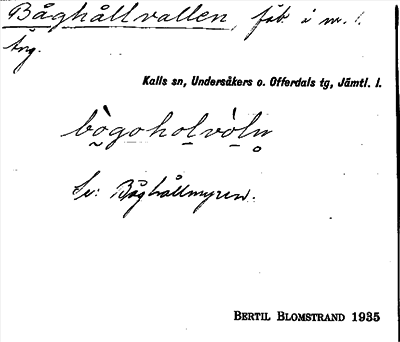 Båghållvallen, fäb. å m. l.
äng.
Kalls sn, Undersåkers o. Offerdals tg, Jämtl. l.
bògoholvòln
Se: Båghållmyren.
BERTIL BLOMSTRAND 1935